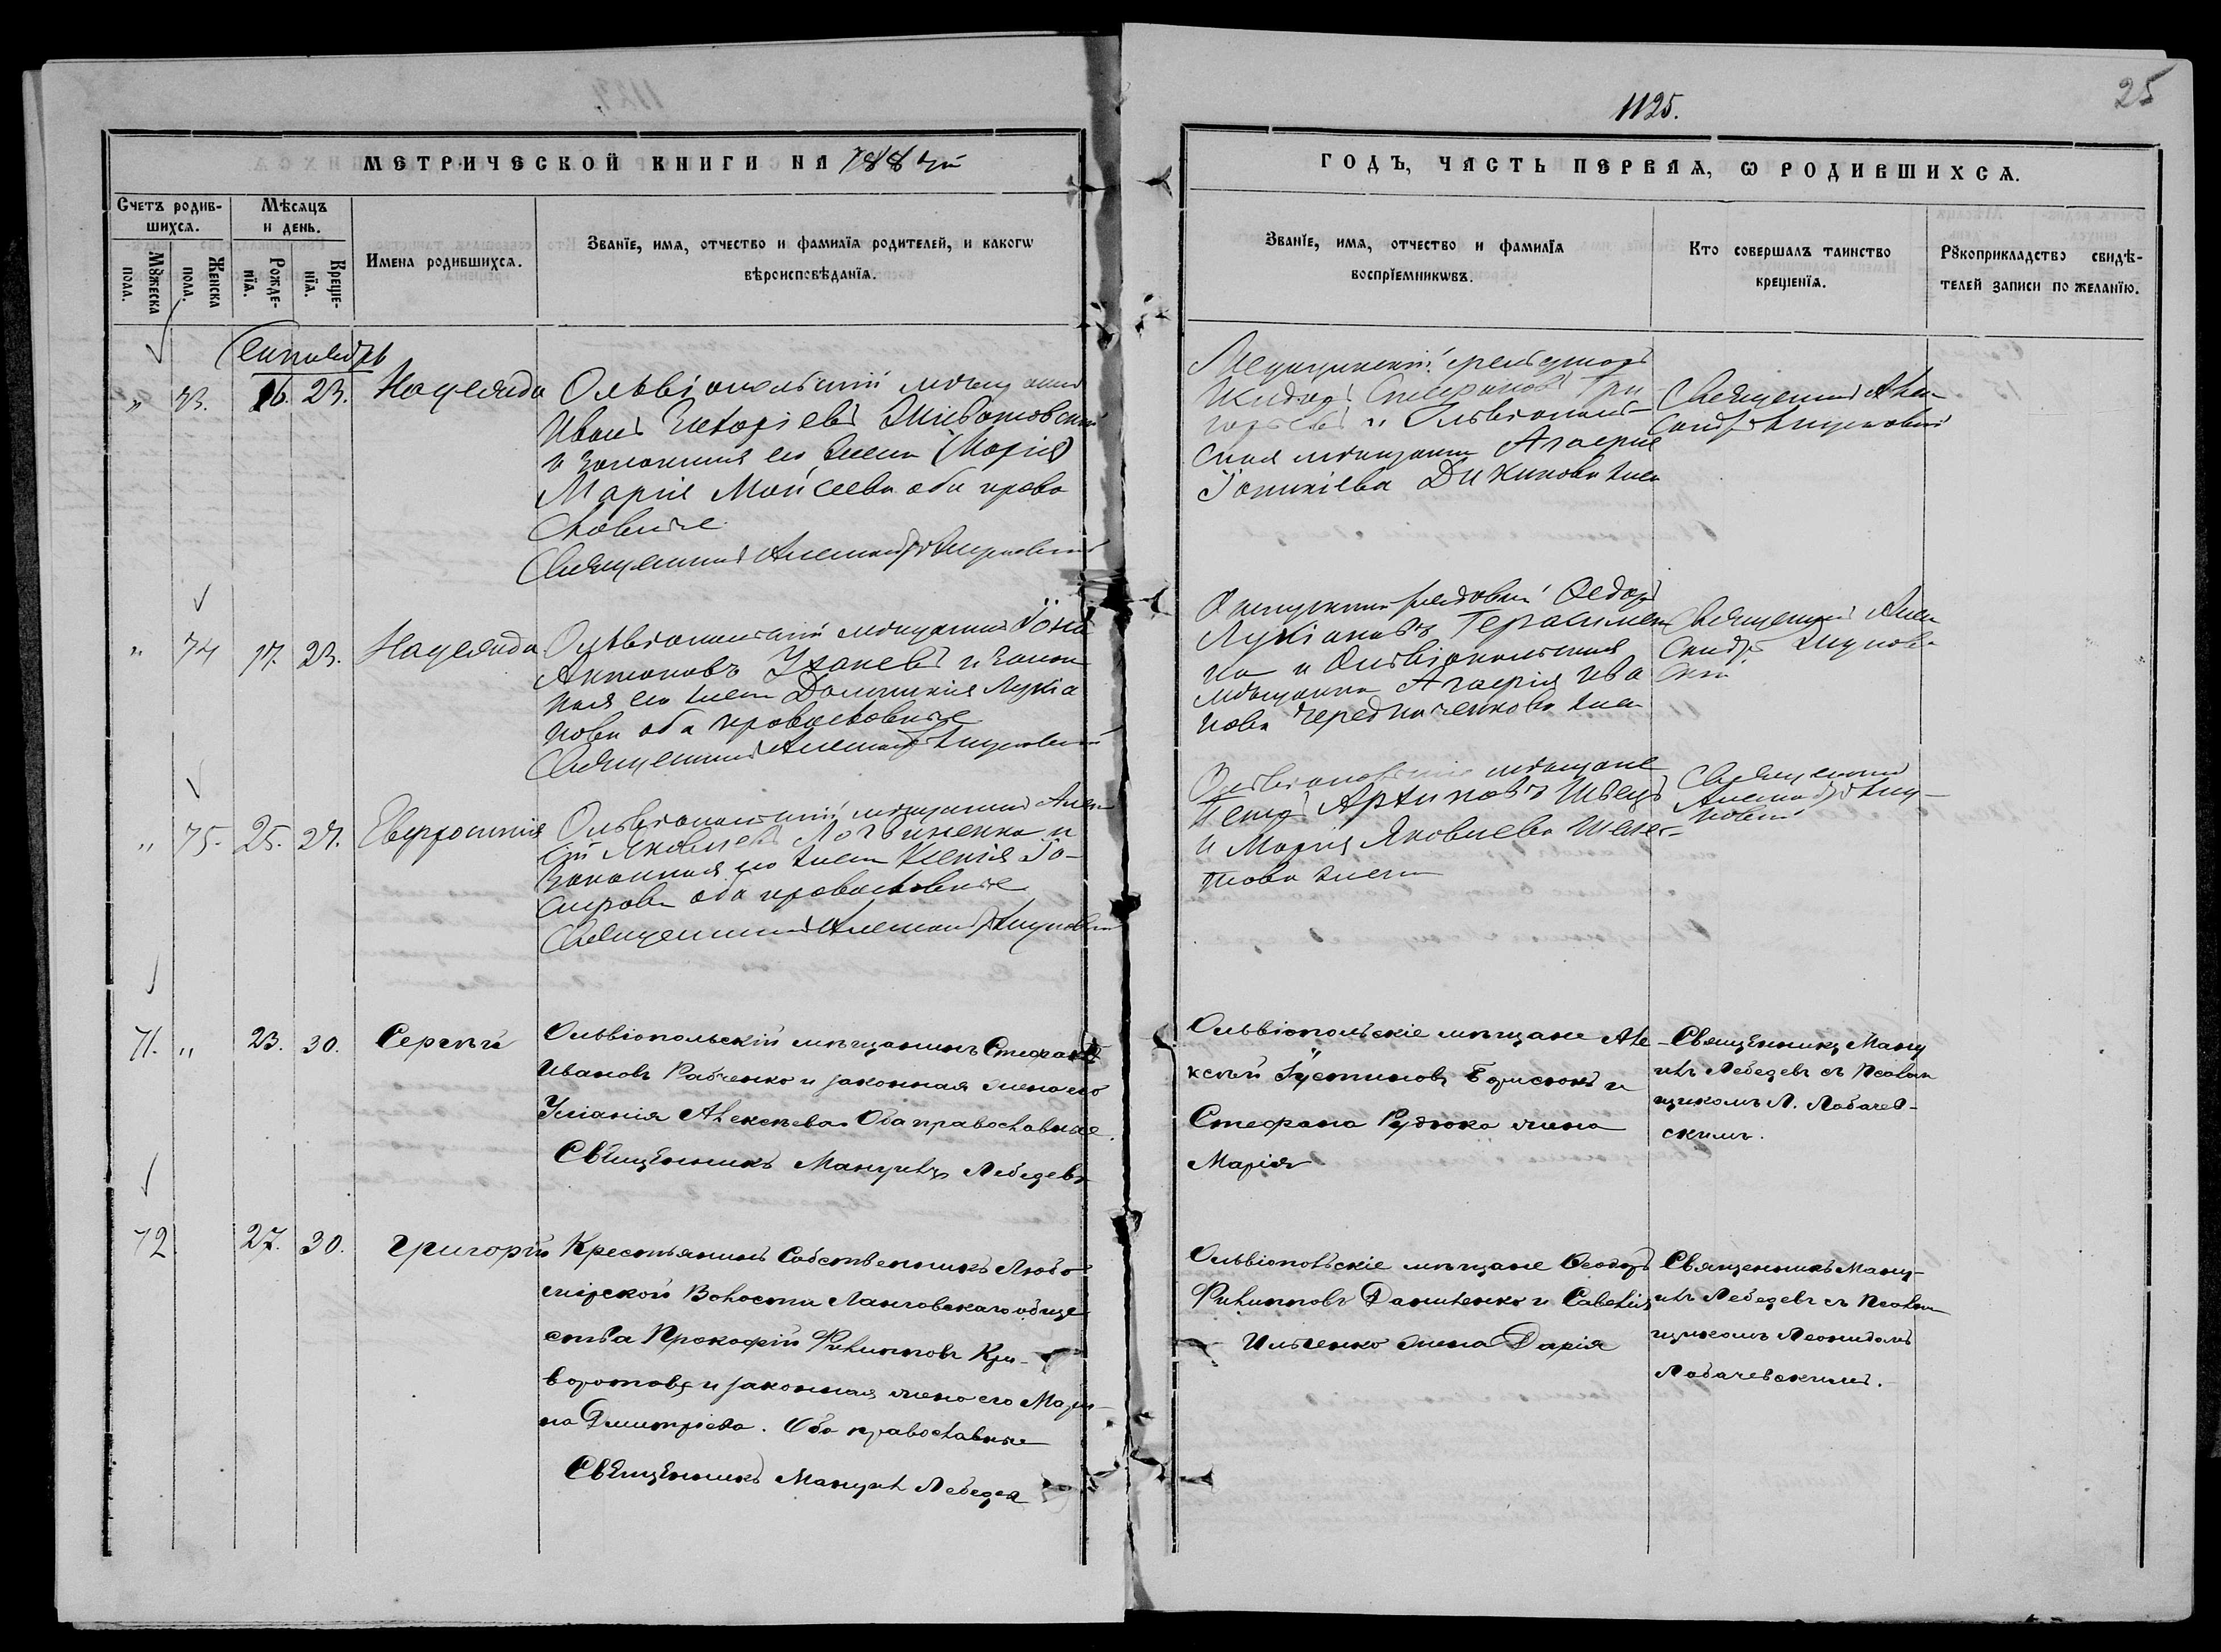 1125.
25
МЕТРИЧЕСКОЙ КНИГИ НА 188
ГОДЪ, ЧАСТЬ ПЕРВАЯ, Ѡ РОДИВШИХСѦ.
Счетъ родив-
шихсѧ.
Мꙋжеска
пола.
Женска
пола.
Мѣсѧцъ
и день.
Рожде-
нїѧ.
Креще-
нїѧ.
Имена родившихсѧ.
Званїе, имѧ, отчество и фамилїѧ родителей, и какогѡ
вѣроисповѣданїѧ.
Званїе, имѧ, отчество и фамилїѧ
воспрїемникѡвъ.
Кто совершалъ таинство
крещенїѧ.
Рꙋкоприкладство свидѣ-
телей записи по желанїю.
Сентябрь
" 73. 16. 23. Надежда
Ольвіопольскій мѣщанинъ
Иванъ
и законная его жена (Марія)
Марія Моисеева оба право
славные
Священникъ Александръ
Медицинскій фельдшеръ
Стефановъ Гри
горьевъ и Ольвіополь-
ская мѣщанка Агафия
Дикинова жена
Священникъ Алек-
сандръ
" 74 17. 23. Надежда
Ольвіопольскій мѣщанинъ Іона
Антоновъ и закон
ная его жена Домникия Лукіа
нова оба православные
Священникъ Александръ
рядовый Ѳедоръ
Лукіановъ Герасимен
ко и Ольвіопольская
мѣщанка Агафія Ива
нова Чередниченкова жена
Священникъ Алек
сандръ
" 75. 25. 27. Евфросинія
Ольвіопольскій мѣщанинъ Алек
сій Яковлевъ Логвиненко и
законная его жена Ксенія
оба православные
Священникъ Александръ
Ольвіопольскіе мѣщане
Петръ Архиповъ Швецъ
и Марія Яковлева Шелес-
това жена
Священникъ
Александръ
71. " 23. 30. Сергѣй
Ольвіопольскій мѣщанинъ Стефанъ
Ивановъ Рабченко и законная жена его
Уліанія Алексѣева. Оба православные.
Священникъ Мануилъ Лебедевъ
Ольвіопольскіе мѣщане Але
ксѣй Іустиновъ Борисюкъ и
Стефана Рудюка жена
Марія
Священникъ Ману
илъ Лебедевъ съ Псалом
щикомъ Л. Лобачев-
скимъ.
72. 27. 30. Григорій
Крестьянинъ Собственникъ Любо
мірской Волости Ланговскаго обще
ства Прокофій Филипповъ Кри-
воротовъ и законная жена его Мари-
на Дмитріева. Оба православные
Священникъ Мануилъ Лебедев
Ольвіопольскіе мѣщане Ѳеодоръ
Филипповъ Даниленко и Савелія
Ильченко жена Дарія
Священникъ Ману-
илъ Лебедевъ съ Псалом
щикомъ Леонидомъ
Лобачевскимъ.